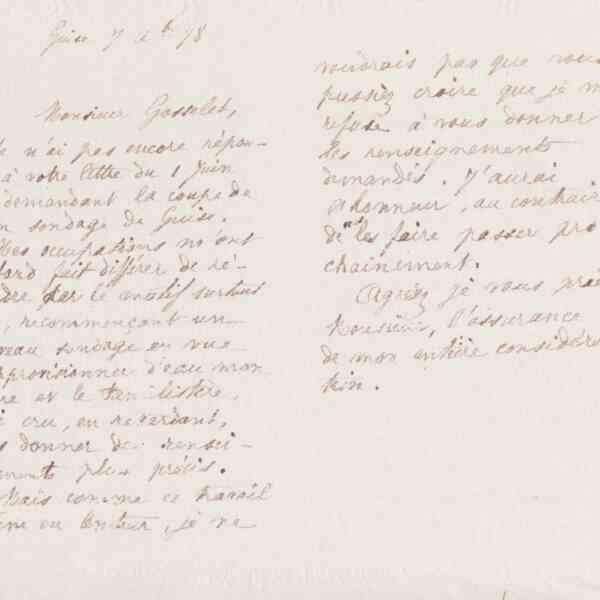 Guise 7 7bre 78
Monsieur Gosselet,
n'ai pas encore répon-
à votre lettre du 1 Juin
demandant la coupe de
sondage de Guise.
occupations m'ont
tard fait différer de ré-
dre par le motif surtout
, recommençant un
veau sondage en vue
approvisionner d'eau mon
et le
cru, en retardant,
donner de rensei-
ments plus précis.
Mais comme ce travail
en lenteur, je ne
voudrais pas que vous
pussiez croire que je m
refuse à vous donner
les renseignements
demandés. J'aurai
l'honneur, au contrair
de les faire passer pro
chainement.
Agréez je vous prie
Monsieur, l'assurance
de mon entière considéra
tion.